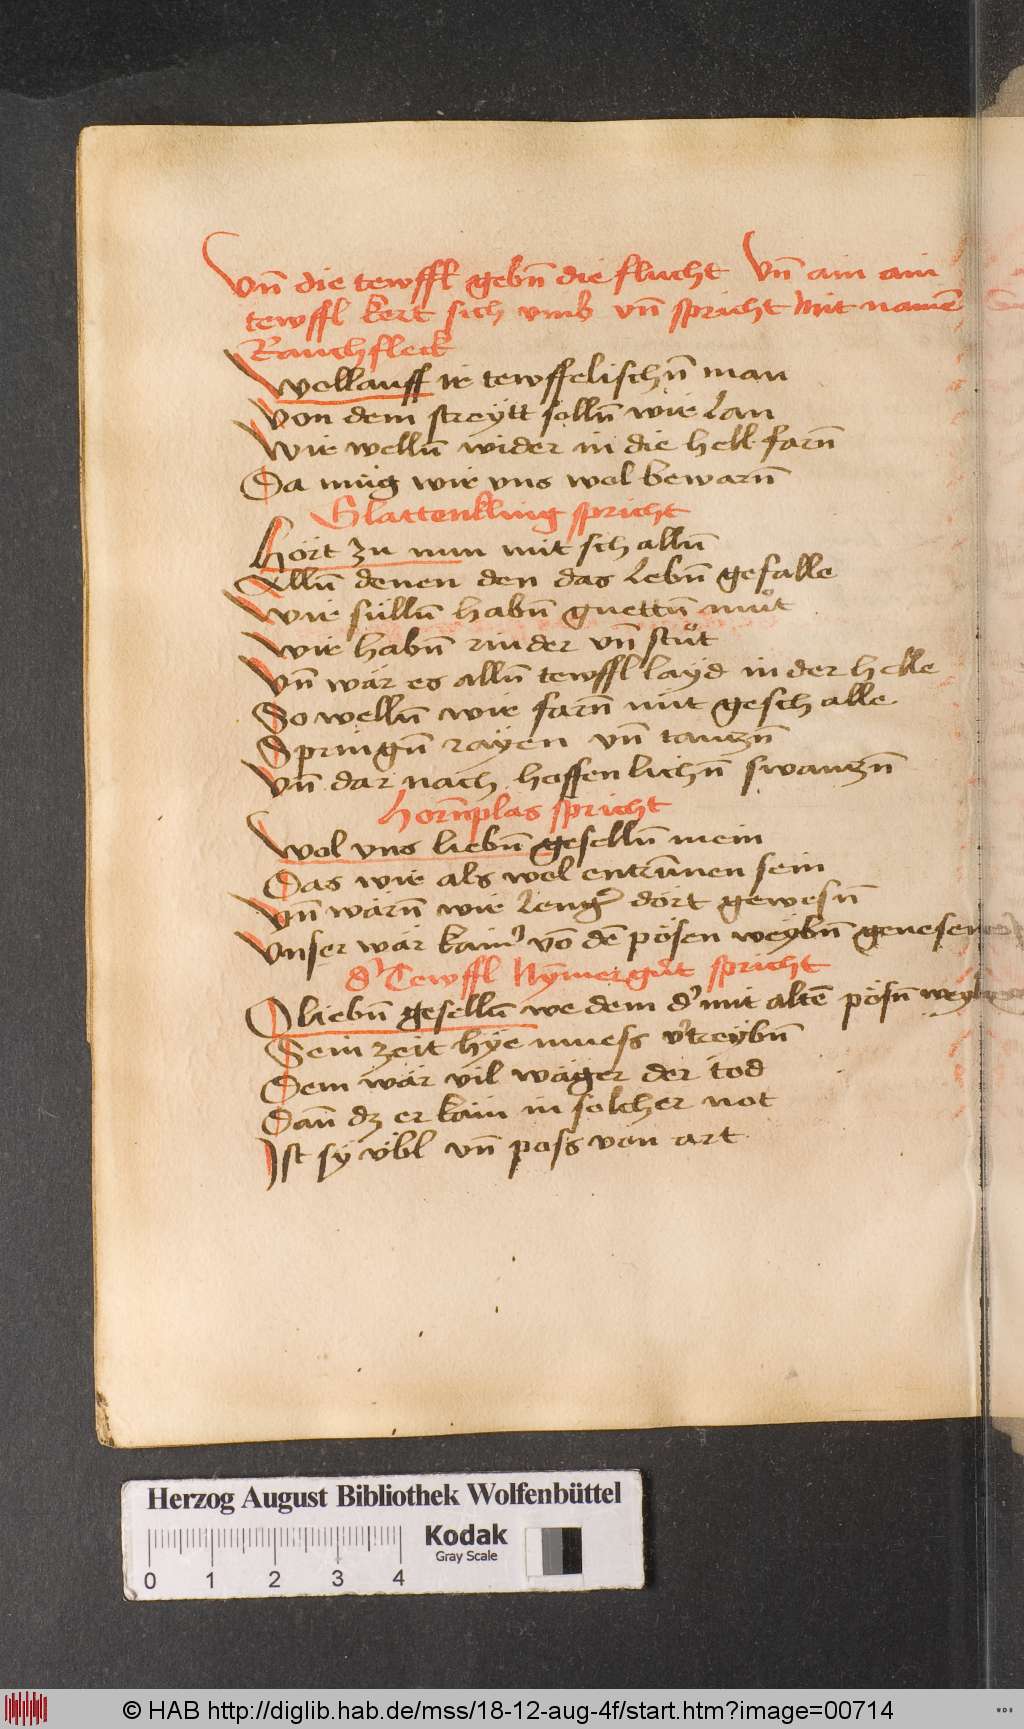 Vn̄ die tewffl gebn̄ die flucht Vn̄ ain ain
tewffl kert sich vmb vn̄ spricht Mit namē
Rauchfleck
Wollauff ir tewffelischn̄ man
Von dem streytt solln̄ wir lan
Wir welln̄ wider in die hell farn̄
Da müg wir vns wol bewarn̄
Glattenkling spricht
Hört zu nun mit schalln̄
Alln̄ denen den das lebn̄ gefalle
Wir sülln̄ habn̄ guettn̄ muͦt
Wir habn̄ rinder vn̄ stuͦt
Vn̄ wär es alln̄ tewffl layd in der helle
So welln̄ wir farn̄ mit geschalle
Springn̄ rayen vn̄ tanczn̄
Vn̄ dar nach hoffenlichn̄ swanczn̄
Horn̄plas spricht
Wol vns liebn̄ geselln̄ mein
Das wir als wol entrun̄en sein
Vn̄ wärn̄ wir leng̾ dört gewesn̄
Vnser wär kain̾ vō dē pösen weybn̄ genesen
d̾ Tewffl Nÿmerguͦt spricht
O liebn̄ geselln̄ we dem d̾ mit altē pösn̄
Sein zeit hye muess v̾treybn̄
Dem wär vil wäger der tod
Dan̄ dz er käm in solcher not
Ist sy vbl vn̄ poss von art
Herzog August Bibliothek Wolfenbüttel
Kodak
Gray Scale
0 1 2 3 4
© HAB http://diglib.hab.de/mss/18-12-aug-4f/start.htm?image=00714